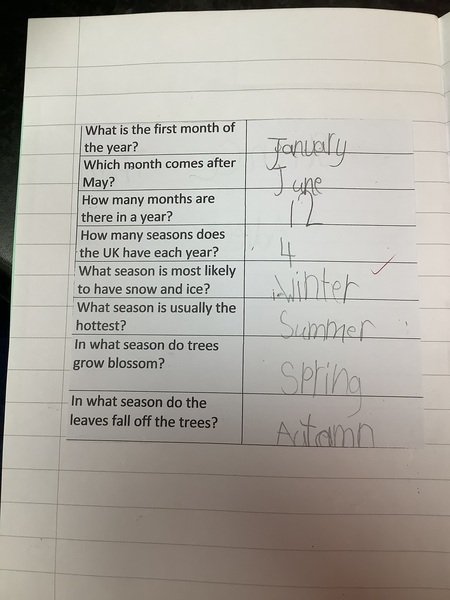 What is the first month of
the year?
January
Which month comes after
May?
June
How many months are
there in a year?
12
How many seasons does
the UK have each year?
4
What season is most likely
to have snow and ice?
Winter
What season is usually the
hottest?
Summer
In what season do trees
grow blossom?
Spring
In what season do the
leaves fall off the trees?
Autamn